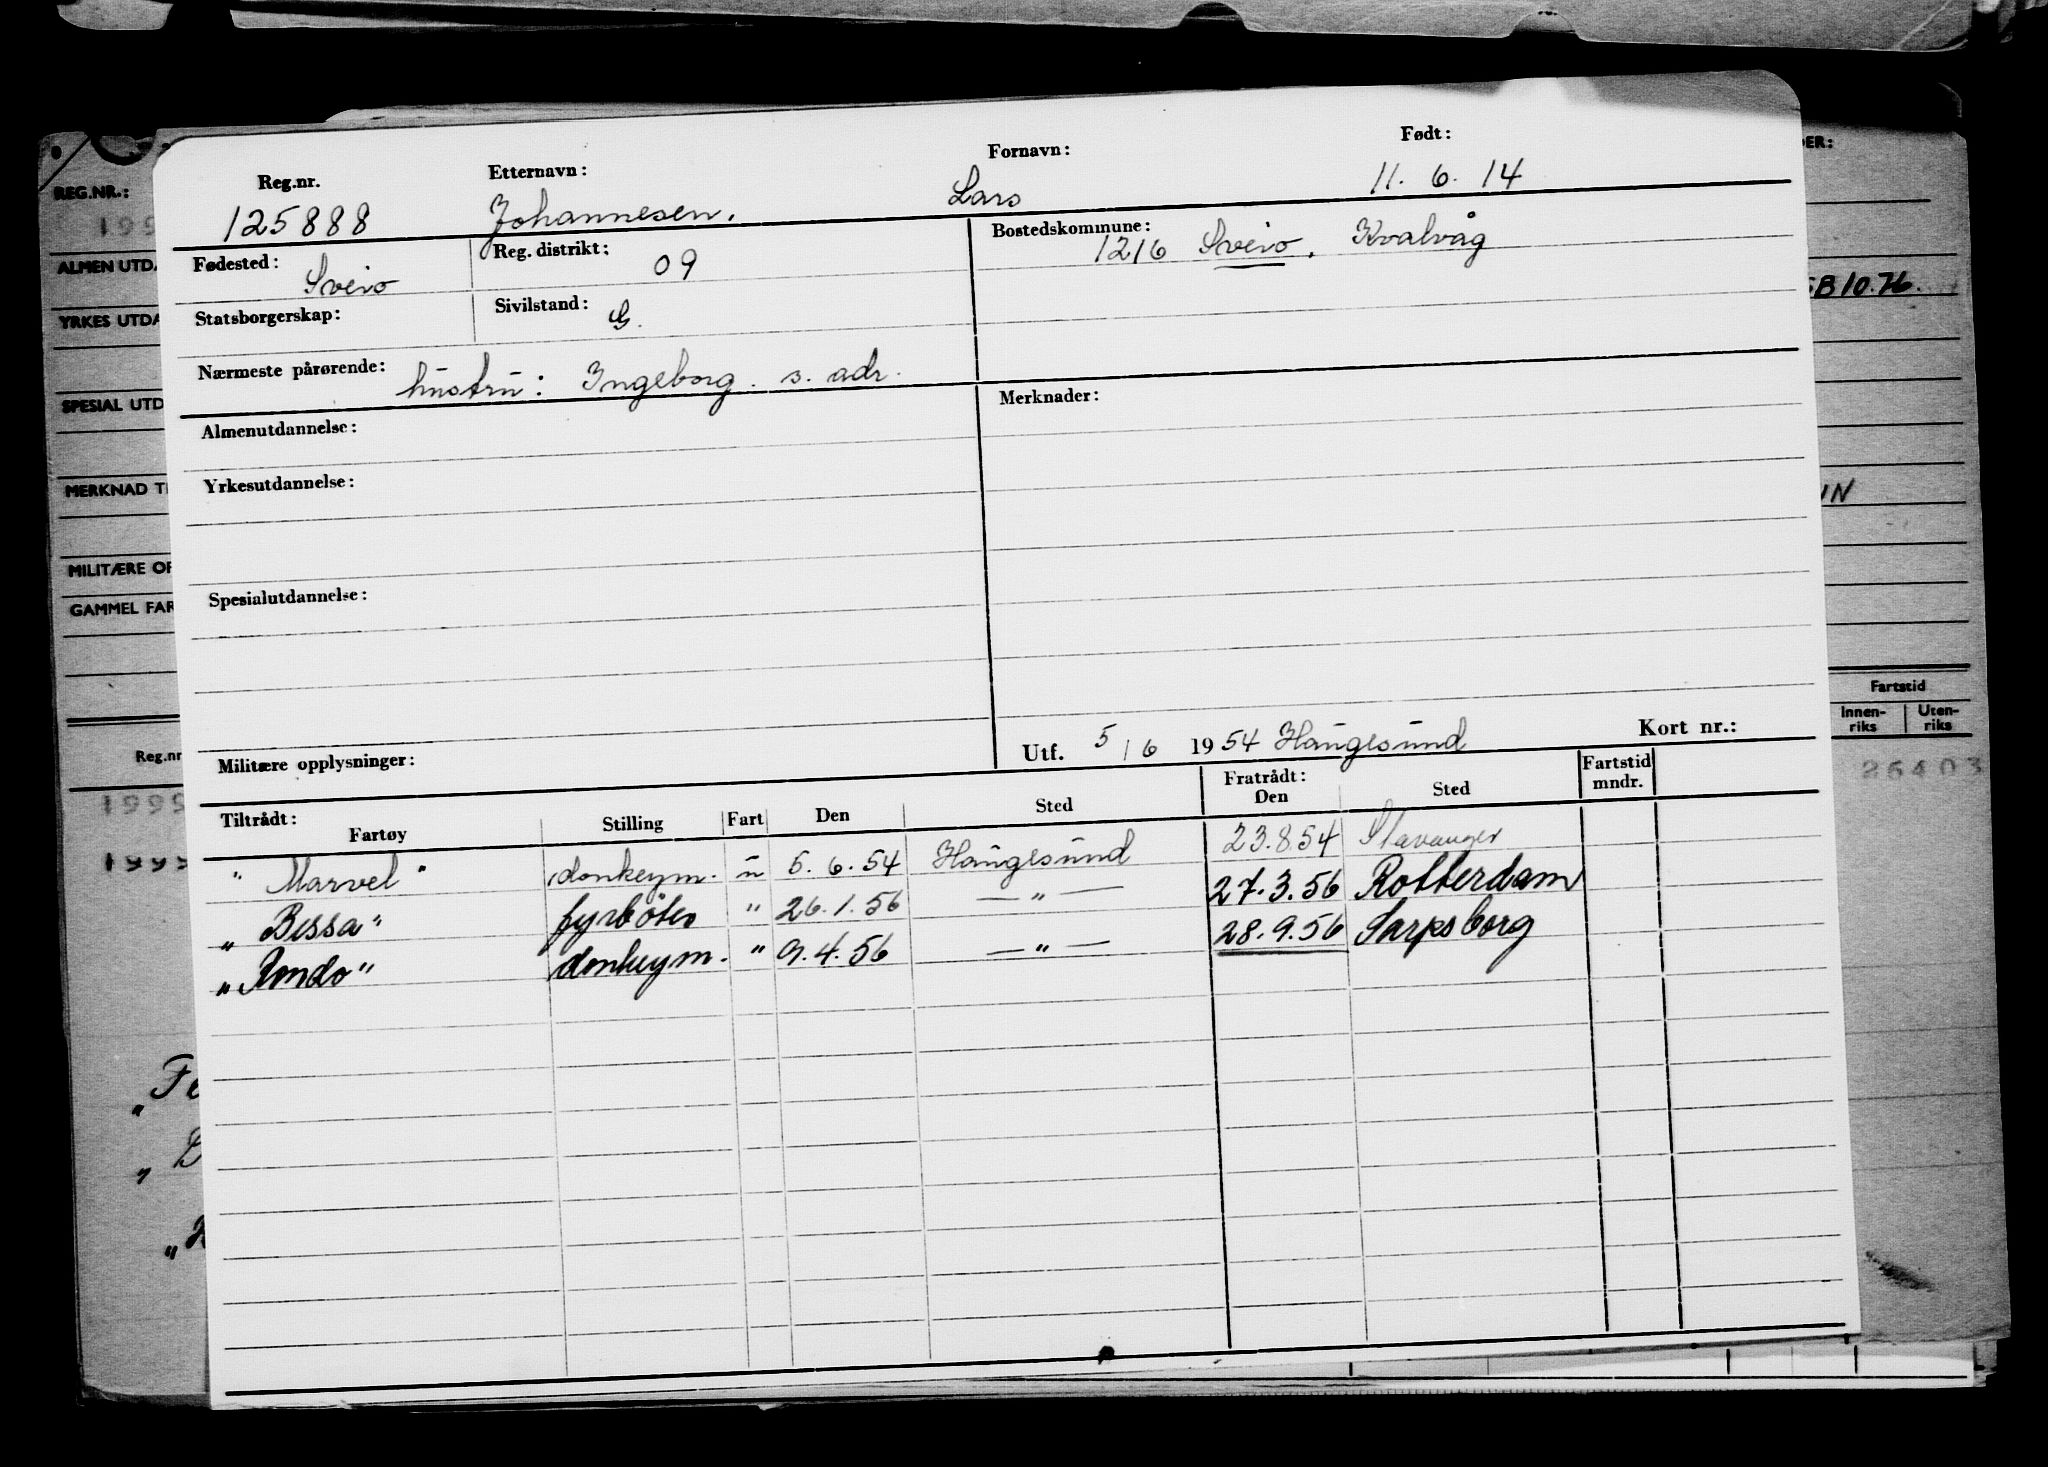 Reg.nr. Etternavn: Fornavn: Født:
125888 Johannesen. Lars 11. 6. 14
Fødested: Sveio Reg. distrikt: 09 Bostedskommune: 1216 Sveio, Kvalvåg
Statsborgerskap: Sivilstand: G.
Nærmeste pårørende: hustru: Ingeborg. s. adr.
Almenutdannelse: Merknader:
Yrkesutdannelse:
Spesialutdannelse:
Militære opplysninger: Utf. 5/6 1954 Haugesund Kort nr.:
Tiltrådt: Fartøy Stilling Fart Den Sted Fratrådt: Den Sted Fartstid mndr.
"Marvel" donkeym. u 5.6.54 Haugesund 23.8.54 Stavanger
"Bessa" fyrbøter " 26.1.56 — " — 27.3.56 Rotterdam
"Rondo" donkeym. " 9.4.56 — " — 28.9.56 Sarpsborg
REG.NR.:
199
ALMEN UTDA
YRKES UTDA
SPESIAL UTD
MERKNAD T
MILITÆRE OP
GAMMEL FAR
Reg.nr
1999
1999
"Fe
"D
"H
DER:
SB 10.76.
Fartstid
Innen-riks Uten-riks
26403